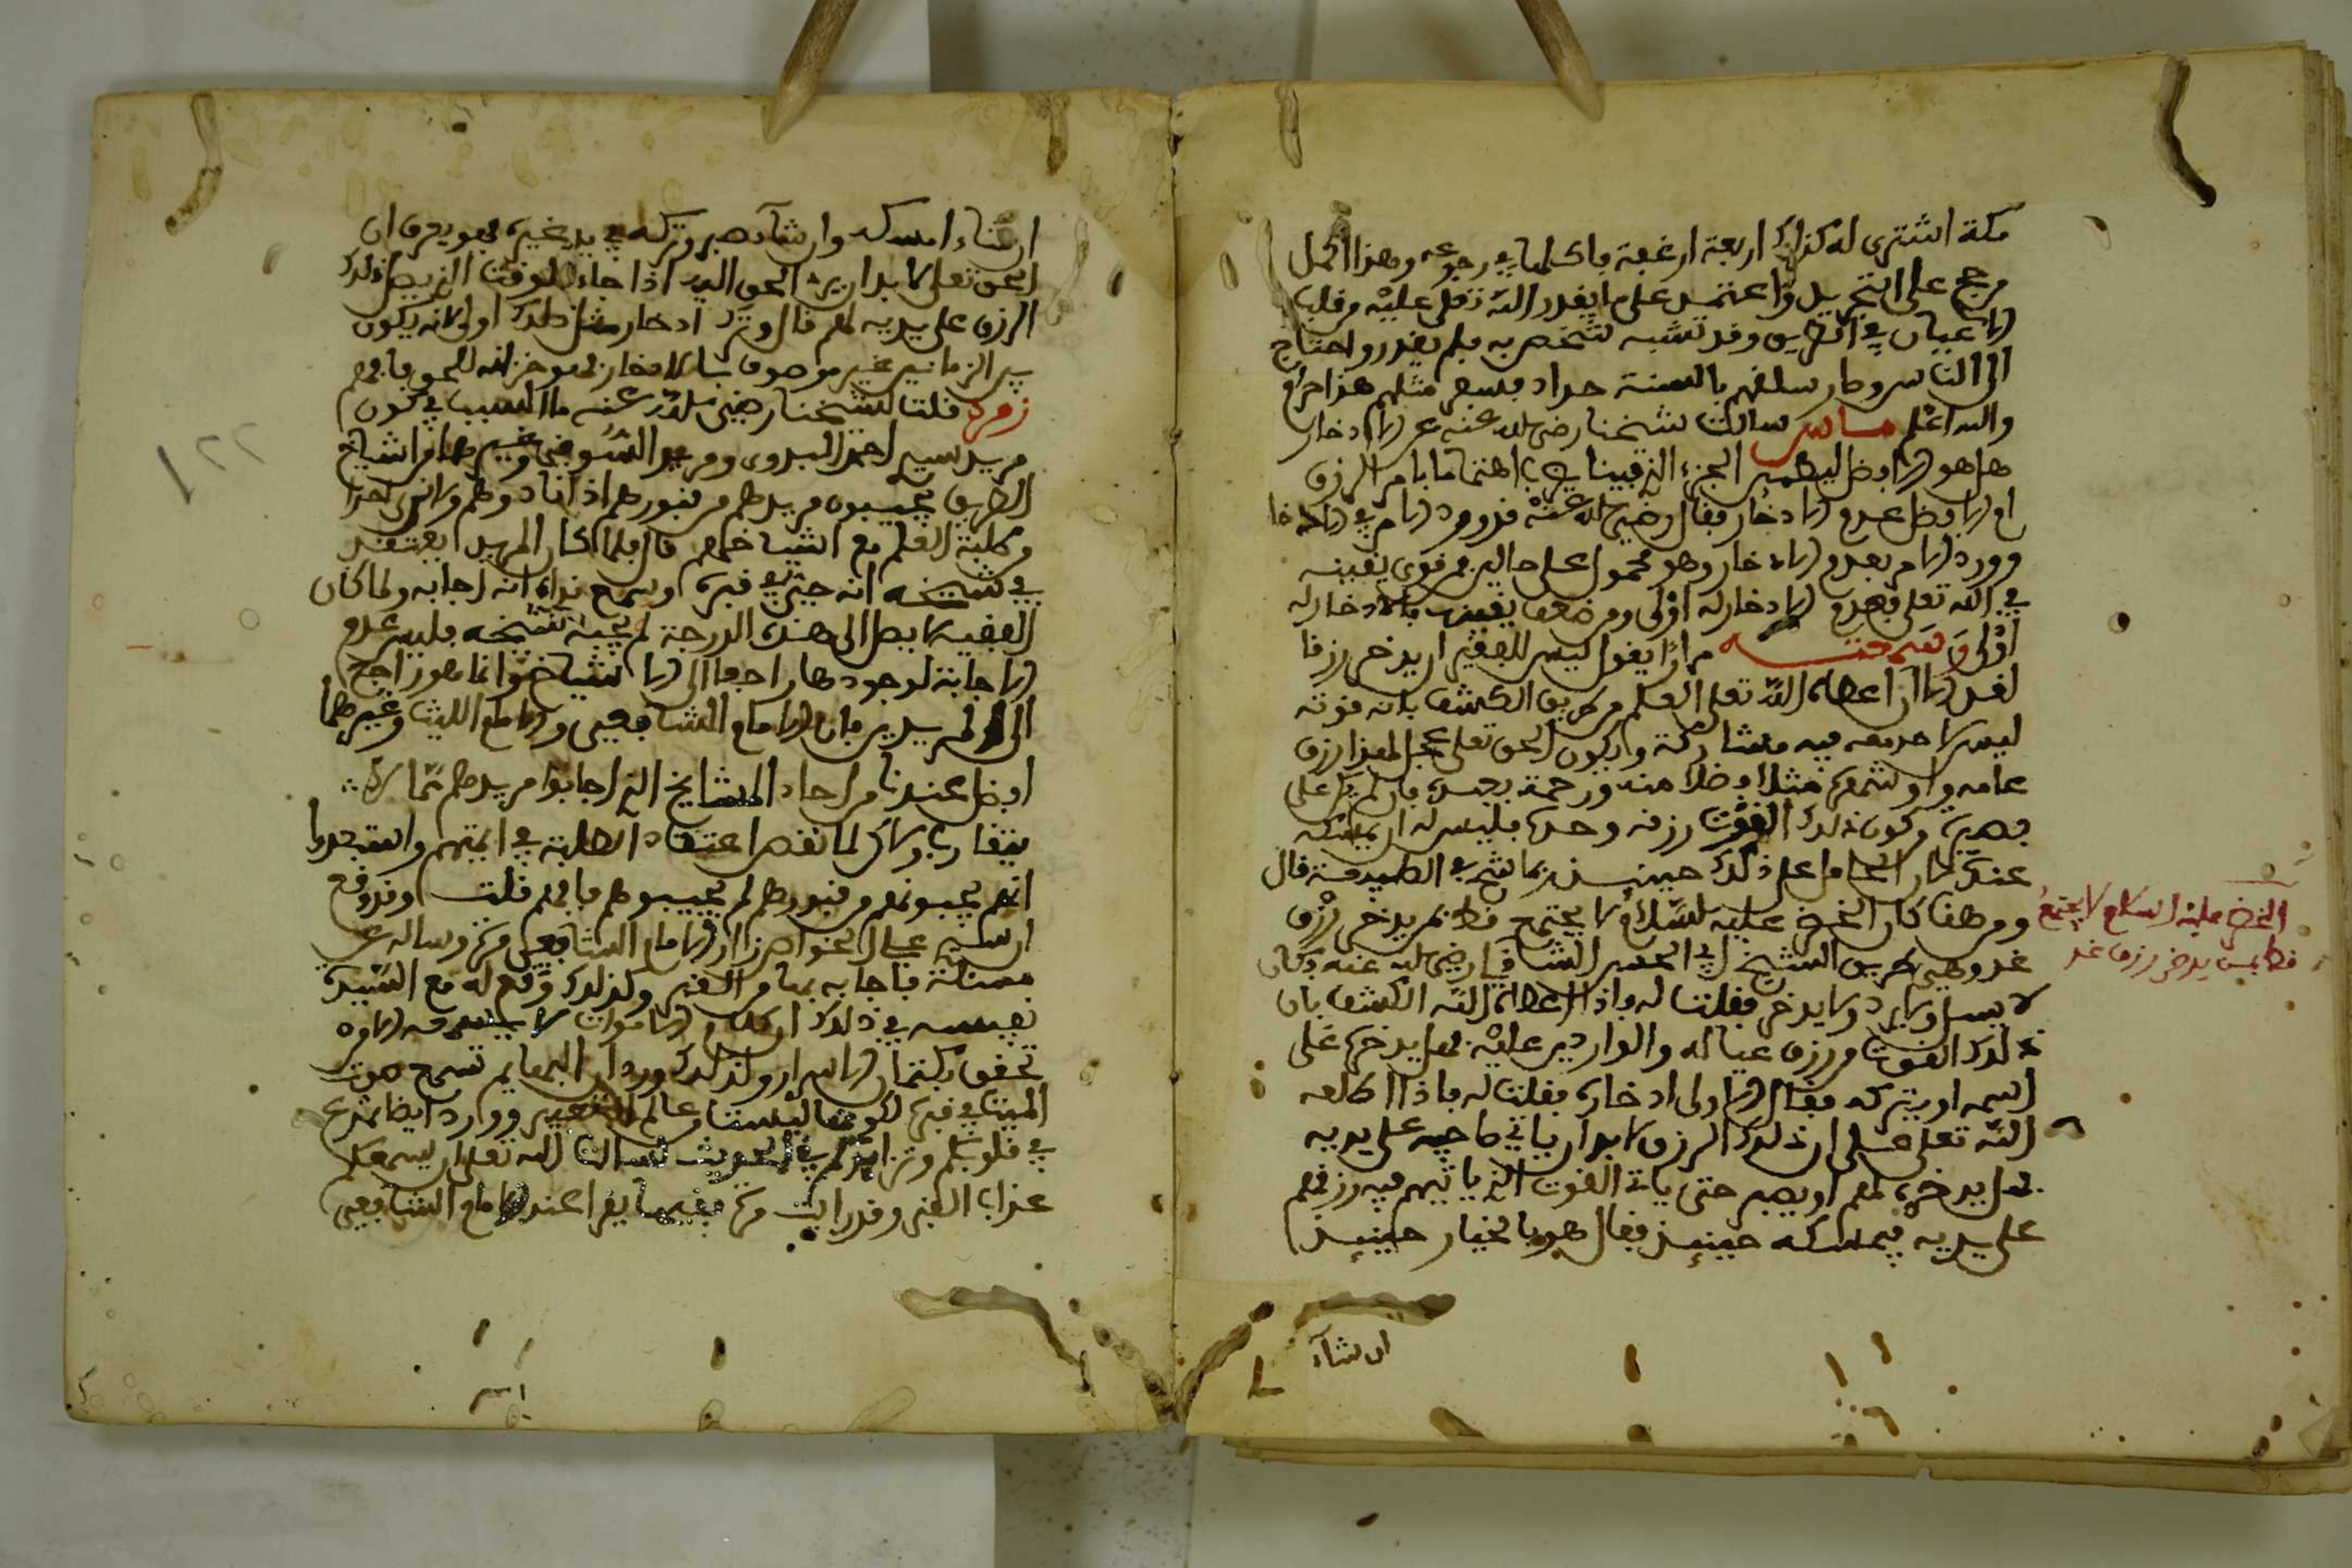 مكة اشترى له كذلك اربعة ارغفة فاكلها في رجوعه وهذا اكمل
مرجح على التجريد واعتمد على ما يقدر الله تعلى عليه وقلب
الاعيان في الطريق وقد تشبه شخص به فلم يقدر واحتاج
الى الناس وصار سلقهم بالسنة حداد فسعر مثلهم هذا حرام
والله اعلم ماس سالت شيخنا رضي الله عنه عن الادخار
هل هو الافضل ليطمين الجزء الذي فينا اهتماما بامر الرزق
او الافضل عدم الادخار فقال رضي الله عنه قد ورد الامر في الادخا
وورد الامر بعدم الادخار وهو محمول على حالين فمن قوى يقينه
في الله تعلى فعدم الادخار له اولى ومن ضعف يقينه فالادخار له
اولى وسمعته مرارا يقول ليس للفقير ان يدخر رزقا
لغد الا ان اعطاه الله تعلى العلم من طريق الكشف بانه قوته
ليس لاحد معه فيه مشاركة وان يكون الحق تعلى عجل له هذا رزق
عامه او شهره مثلا فضلا منه ورحمة بحسه فان لم يكن على
بصيرة من كون ذلك القوت رزقه وحده فليس له ان يمسكه
عنده لان الحامل على ذلك حينئذ انما شح في الطبيعة قال
ومن هنا كان الخضر عليه السلام لا يجتمع قط بمن يدخر رزق
غد وهي طريق الشيخ ابي الحسن الشاذلي رضي الله عنه وكان
لا يسل ولا يرد ولا يدخر فقلت له فاذا اعطاه الله الكشف بان
ذلك القوت من رزق عياله والواردين عليه فهل يدخره على
اسمه او يتركه فقال الاولى ادخاره فقلت له فاذا اطلعه
الله تعلى على ان ذلك الرزق لا بد ان ياتي صاحبه على يديه
فهل يدخره لهم او يصبر حتى ياتي القوت الذي ياتيهم فيه رزقهم
على يديه فيمسكه حينئذ فقال هو بالخيار حينئذ
ان شآء
الخضر عليه السلام لا يجتمع
قط بمن يدخر رزق غد
ان شاء امسكه وان شآء صبر وتركه في يد غيره فهو يعرف ان
الحق تعلى لا بد ان يرد الحق اليه اذا جاء الوقت الذي يصل ذلك
الرزق على يديه لهم قال وترك ادخار مثل ذلك اولى لانه يكون
بين الزمانين غير موصوف بالادخار فهو خزانة للحق فافهم
زمرد قلت لشيخنا رضي الله عنه ما السبب في كون
مريد سيدي احمد البدوي ومريد الشوبي وغيرهما من اشياخ
الطريق يجيبون مريدهم من قبورهم اذا نادوهم ولا نرى احدا
من طلبة العلم مع اشياخهم قال فلما كان المريد يعتقد
في شيخه انه حي في قبره وسمع نداه انه اجابه ولما كان
الفقيه لا يصل الى هذه الدرجة لم يجبه شيخه فليس عدم
الاجابة لوجودها راجعا الى الاشياخ وانما هو راجع
الى المريدين فان الامام الشافعي والامام الليث وغيرهما
افضل عندنا من احاد المشايخ الذين اجابوا مريدهم بما لا
يتقارب ولاكن لما نقص اعتقاد الطلبة في ايمتهم واستبعدوا
انهم يجيبونهم من قبورهم لم يجيبوهم فافهم قلت وقد وقع
ان سيدي علي الخواص زار الامام الشافعي مرة وساله عن
مسئلة فاجابه بها من القبر وكذلك وقع له مع السيدة
نفيسة في ذلك ان كلام الاموات لا يسمعه الا من
تحقق بكتمان الاسرار ولذلك ورد ان البهايم تسمع صوت
الميت في قبره لكونها ليست من عالم التعبير وورد ايضا تمزع
في قلوبكم وتزايدكم في الحديث لسالت الله تعلى ان يسمعكم
عذاب القبر وقد رايت مرة فقيها يقرا عند الامام الشافعي